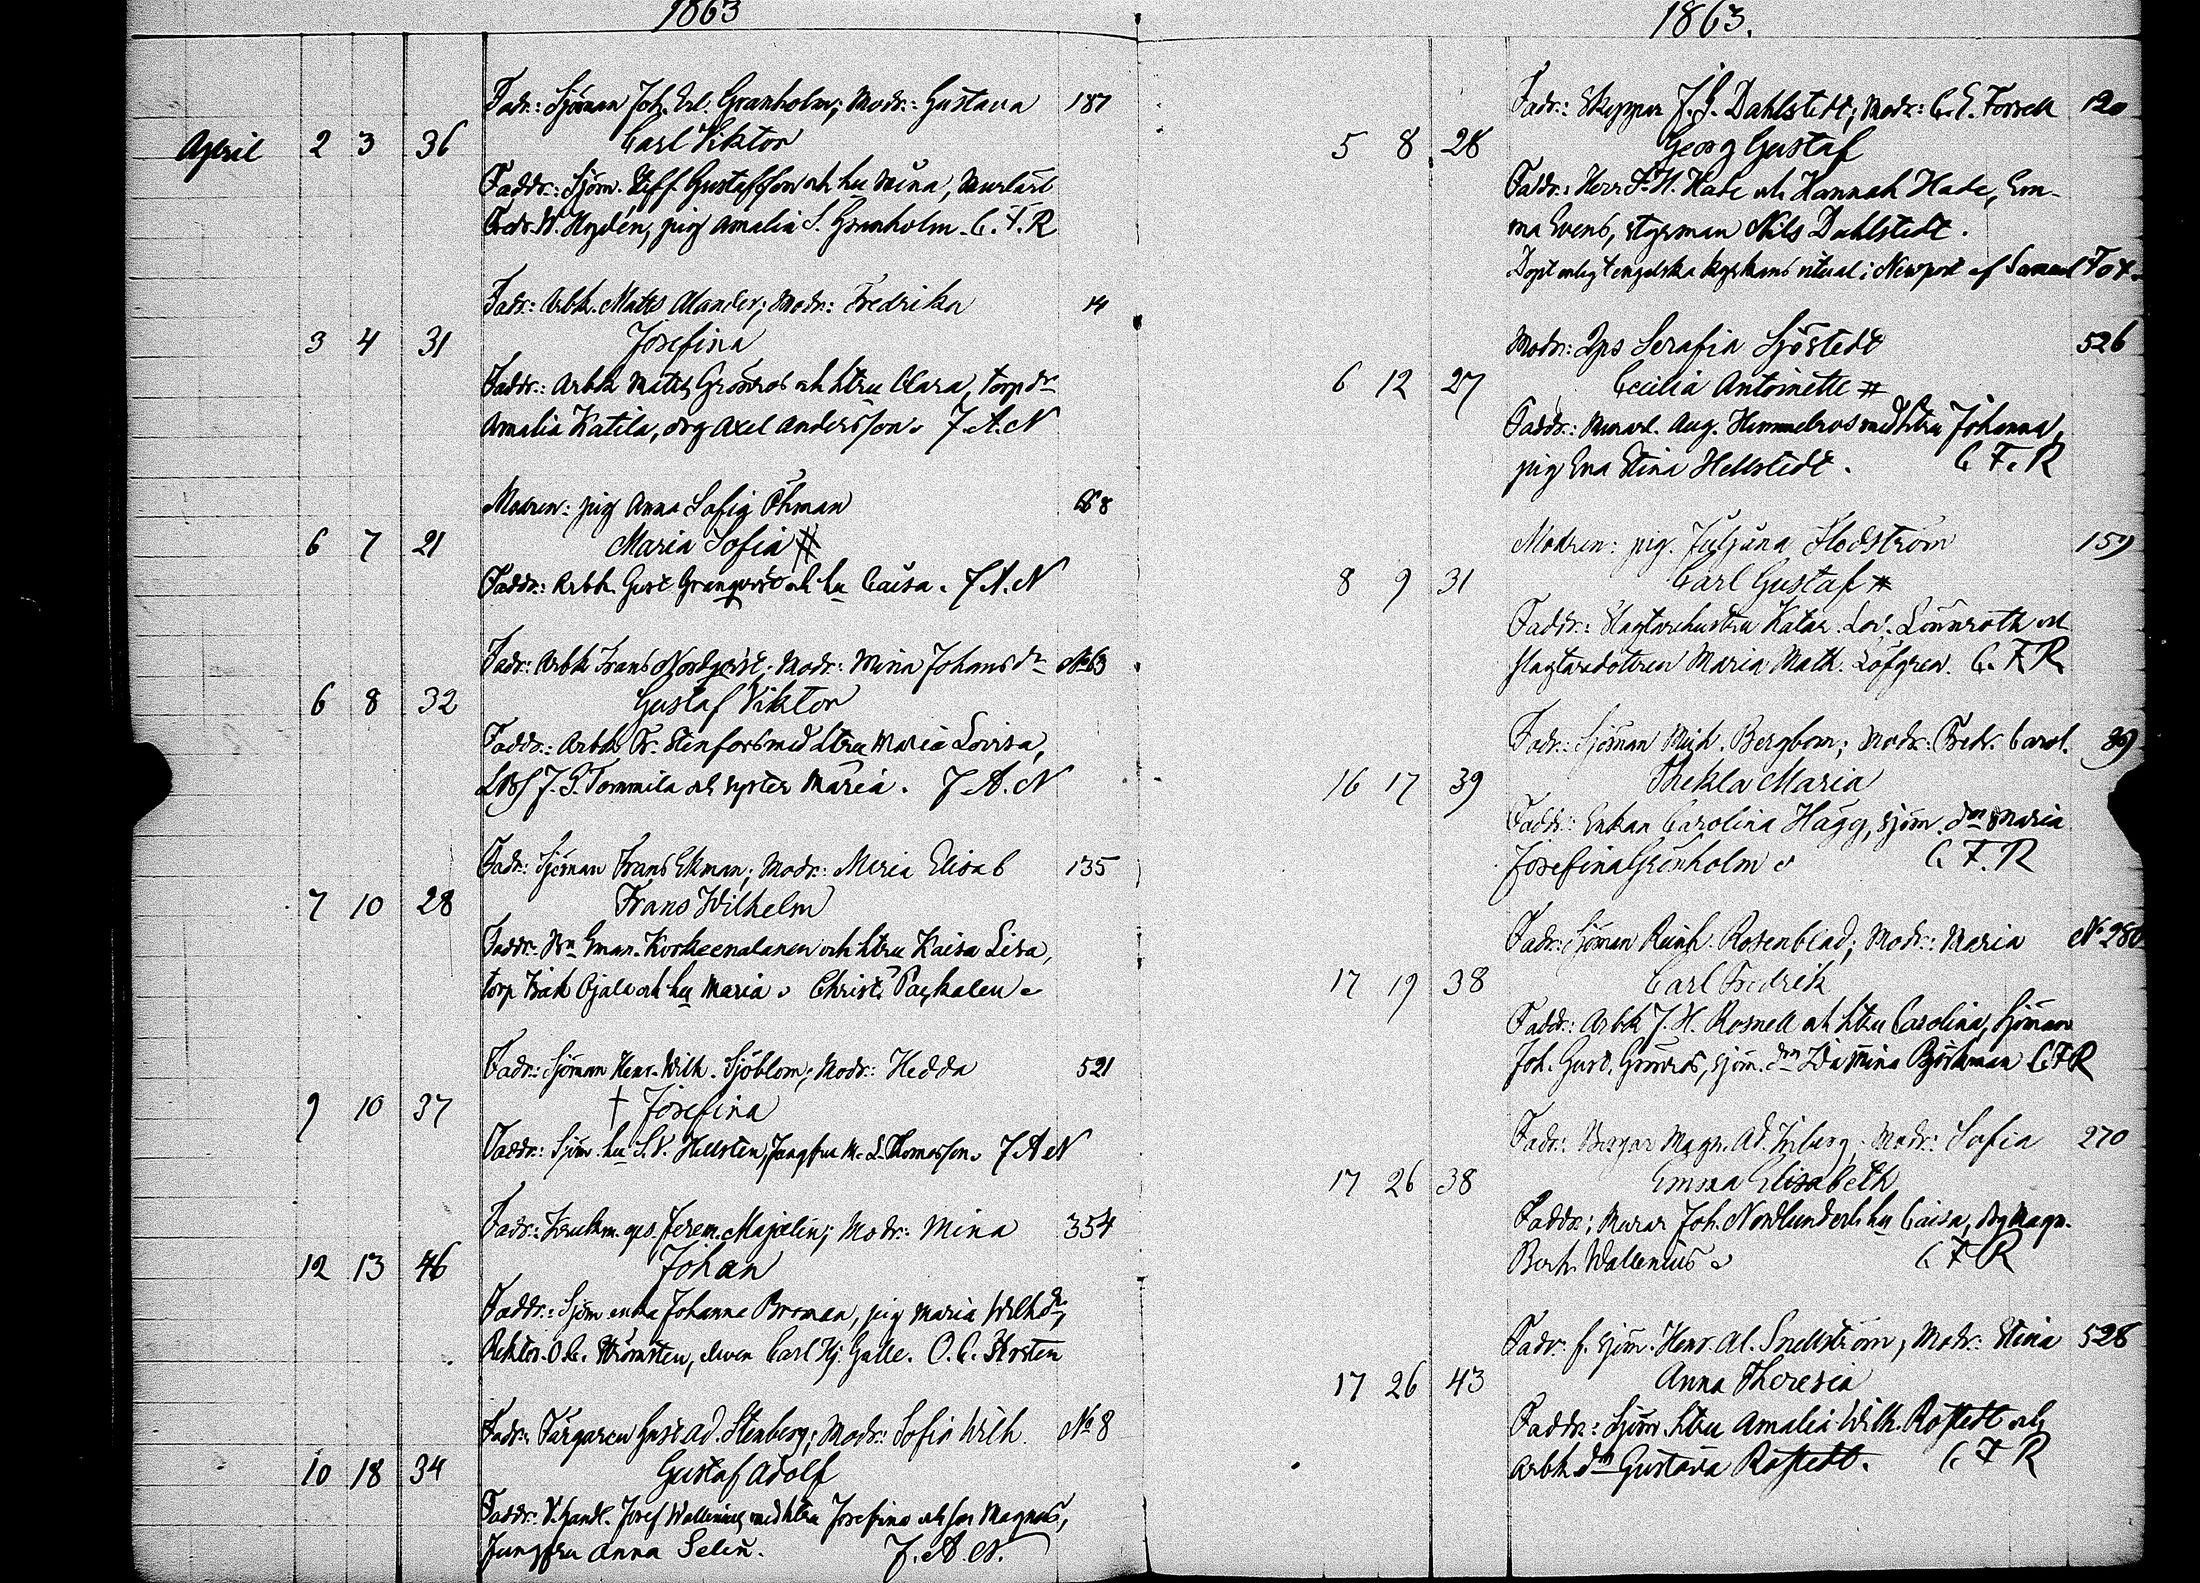 1863
Fadr: Sjöman Joh. Erl. Granholm; Modr: Gustava 187
April 2 3 36 Carl Viktor
Faddr: Sjöm. Gustafsson och hu Mina, Murlärl
Fredr. W. Hydén, pig Amalia S. Granholm. C. F. R
Fadr: Arbk. Matts Alander; Modr: Fredrika 14
3 4 31 Josefina
Faddr: Arbk Matts Grönros och htru Clara, torp dr
Amalia Katila, drg Axel Andersson. F. A. N
Modren: pig Anna Sofia Öhman 68
6 7 21 Maria Sofia #
Faddr: Arbk. Gust Granqvist och hu Caisa. F. A. N
Fadr: Arbk Frans Nordqvist. Modr: Mina Johans dr No 63
6 8 32 Gustaf Viktor
Faddr: Arbk Fr. Stenfors med htru Maria Lovisa,
J. G. Tommila och syster Maria. F. A. N
Fadr: Sjöman Frans Ekman; Modr: Maria Elisab 135
7 10 28 Frans Wilhelm
Faddr: Eman. Korkeenalanen och htru Kaisa Lisa,
torp Isak Ojala och hu Maria. Christ.
Fadr: Sjöman Henr. Wilh. Sjöblom; Modr: Hedda 521
9 10 37 † Josefina
Faddr: Sjöm. hu S. V. Hellsten, Jungfru M. L. Thomasson. F A N
Fadr: Jerem. Majalin; Modr: Mina 354
12 13 46 Johan
Faddr: Sjöm enka Johanna Broman, pig Maria Wilh dr,
Rektor O. C. Strömsten, eleven Carl Hj. Galle. O. C. Strsten
Fadr: Färgaren Gust Ad. Stenberg; Modr: Sofia Wilh. No 8
10 18 34 Gustaf Adolf
Faddr: V. handl. Josef Wallenius med htru Josefina och son Magnus,
Jungfru Anna Selin. F. A. N.
1863.
Fadr: Skeppar J. G. Dahlstedt; Modr: C. E. Forsell 120
5 8 28 Georg Gustaf
Faddr: Herr F. H. Hade och Hannah Hade, Em-
ma Evens, styrman Nils Dahlstedt.
Döpt enligt engelska kyrkans ritual i Newport af Samuel Fox.
Modr: Serafia Sjöstedt 526
6 12 27 Cecilia Antoinette #
Faddr: Murarl. Aug. Himmelros med htru Johanna,
pig Eva Stina Hellstedt. C. F. R
Modren: pig. Juljana Flodström 159
8 9 31 Carl Gustaf #
Faddr: Slagtarehustru Katar. Lov. Lönnroth och
slagtaredottren Maria Math. Löfgren. C. F. R
Fadr: Sjöman Mich. Bergbom; Modr: Fredr. Carol. 39
16 17 39 Thekla Maria
Faddr: Enkan Carolina Hägg, sjöm. dr Maria
Josefina Grönholm C. F. R
Fadr: Sjöman Reinh. Rosenblad; Modr: Maria No 280
17 19 38 Carl Fredrik
Faddr: Arbk J. H. Rosnell och htru Carolina, Sjöman
Joh. Gust. Grönros, sjöm. dr Ida Mina Björkman C. F. R
Fadr: Magn. Ad. Modr: Sofia 270
17 26 38 Emma Elisabeth
Faddr: Murar Joh. Nordlund och hu Caisa, drg Magn.
Berh. Wallenius C F R
Fadr: f. sjöm. Henr. Al. Snellström; Modr: Stina 528
17 26 43 Anna Theresia
Faddr: Sjöm. htru Amalia Wilh. Rostedt och
Arbk. dr Gustava Rostedt. C. F R